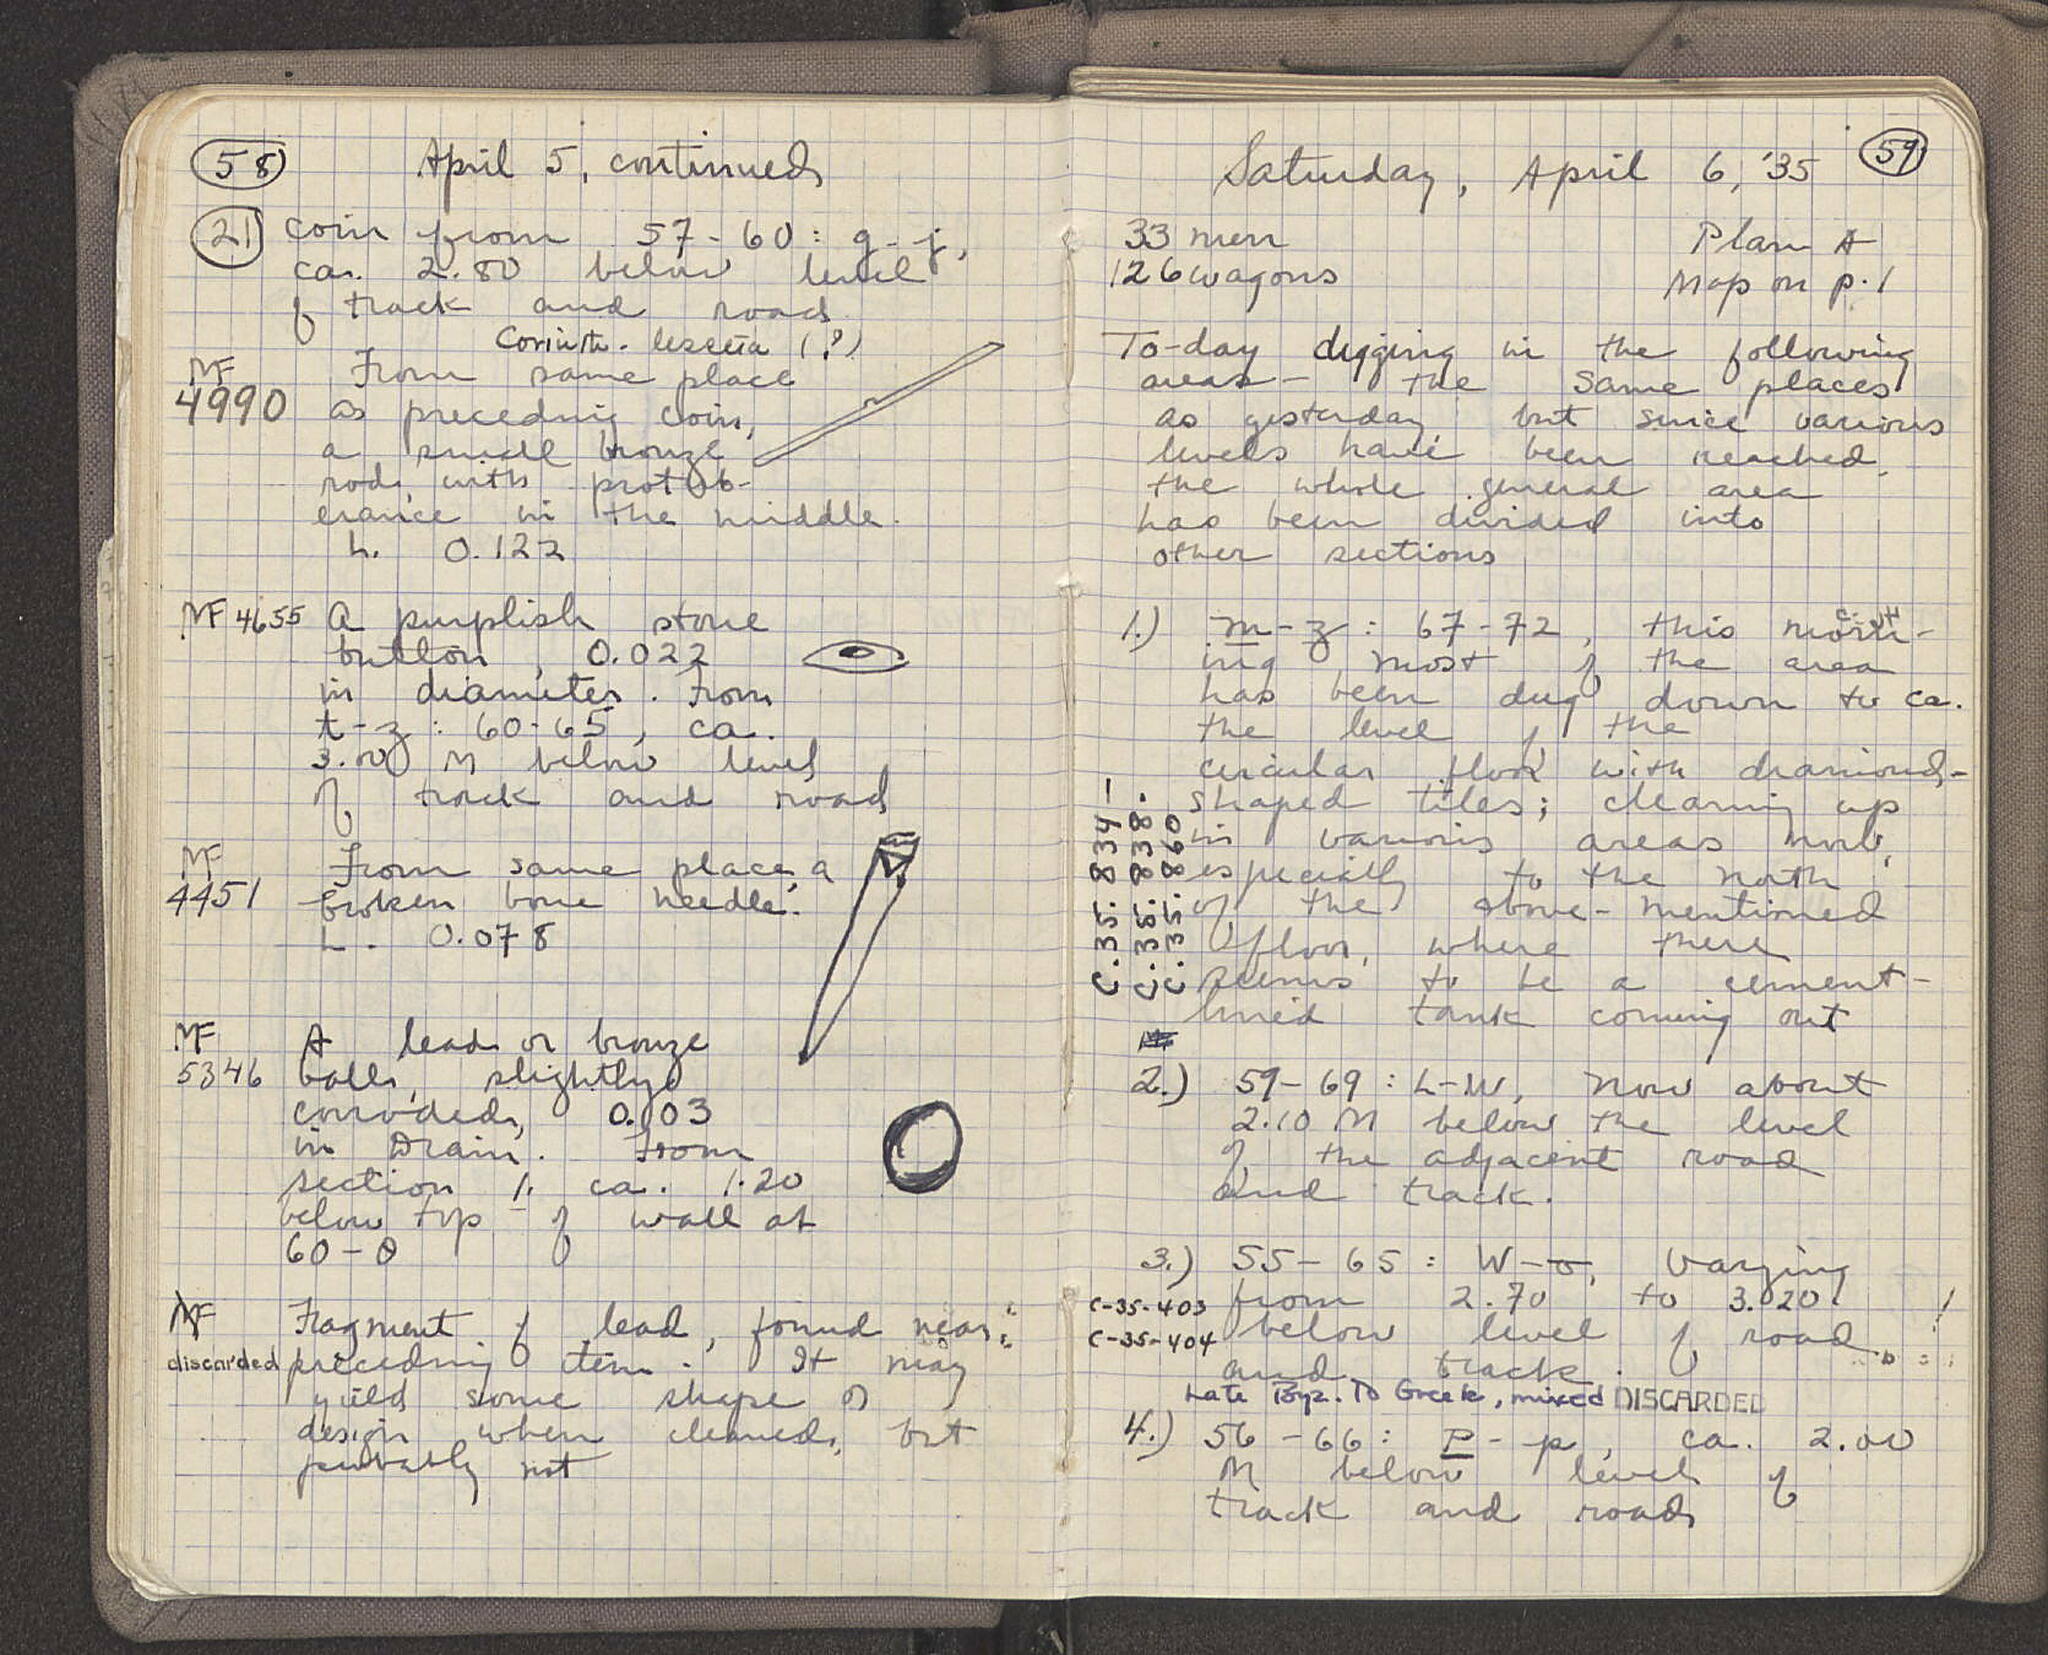 58
April 5, continued
21 coin from 57-60: g-j,
ca. 2.80 below level
of track and road
Corinth.
MF 4990
From same place
as preceding coin,
a small bronze
rod, with protub-
erance in the middle.
L. 0.122
MF 4655 A purplish stone
button, 0.022
in diameter. From
t-z: 60-65, ca.
3.00 M below level
of track and road
MF 4451
From same place, a
broken bone needle.
L. 0.078
MF 5346
A lead or bronze
ball, slightly
corroded, 0.03
in Diam. From
section 1. ca. 1.20
below top of wall at
60-θ
MF discarded
Fragment of lead, found near
preceding item. It may
yield some shape or
design when cleaned, but
probably not
59
Saturday, April 6, '35
33 men Plan A
126 wagons Map on p. 1
To-day digging in the following
areas - the same places
as yesterday but since various
levels have been reached,
the whole general area
has been divided into
other sections
1.) m-z: 67-72, this morn-
ing most of the area
has been dug down to ca.
the level of the
circular floor with diamond-
shaped tiles; cleaning up
in various areas now,
especially to the north
of the above-mentioned
floor, where there
seems to be a cement-
lined tank coming out
C.35.834-
C.35.838.
C.35.860
2.) 59-69: L-W, now about
2.10 M below the level
of the adjacent road
and track.
3.) 55-65: W-σ, varying
from 2.70 to 3.20
below level of road
and track.
C-35-403
C-35-404
Late Byz. To Greek, mixed DISCARDED
4.) 56-66: P-p, ca. 2.00
M below level of
track and road